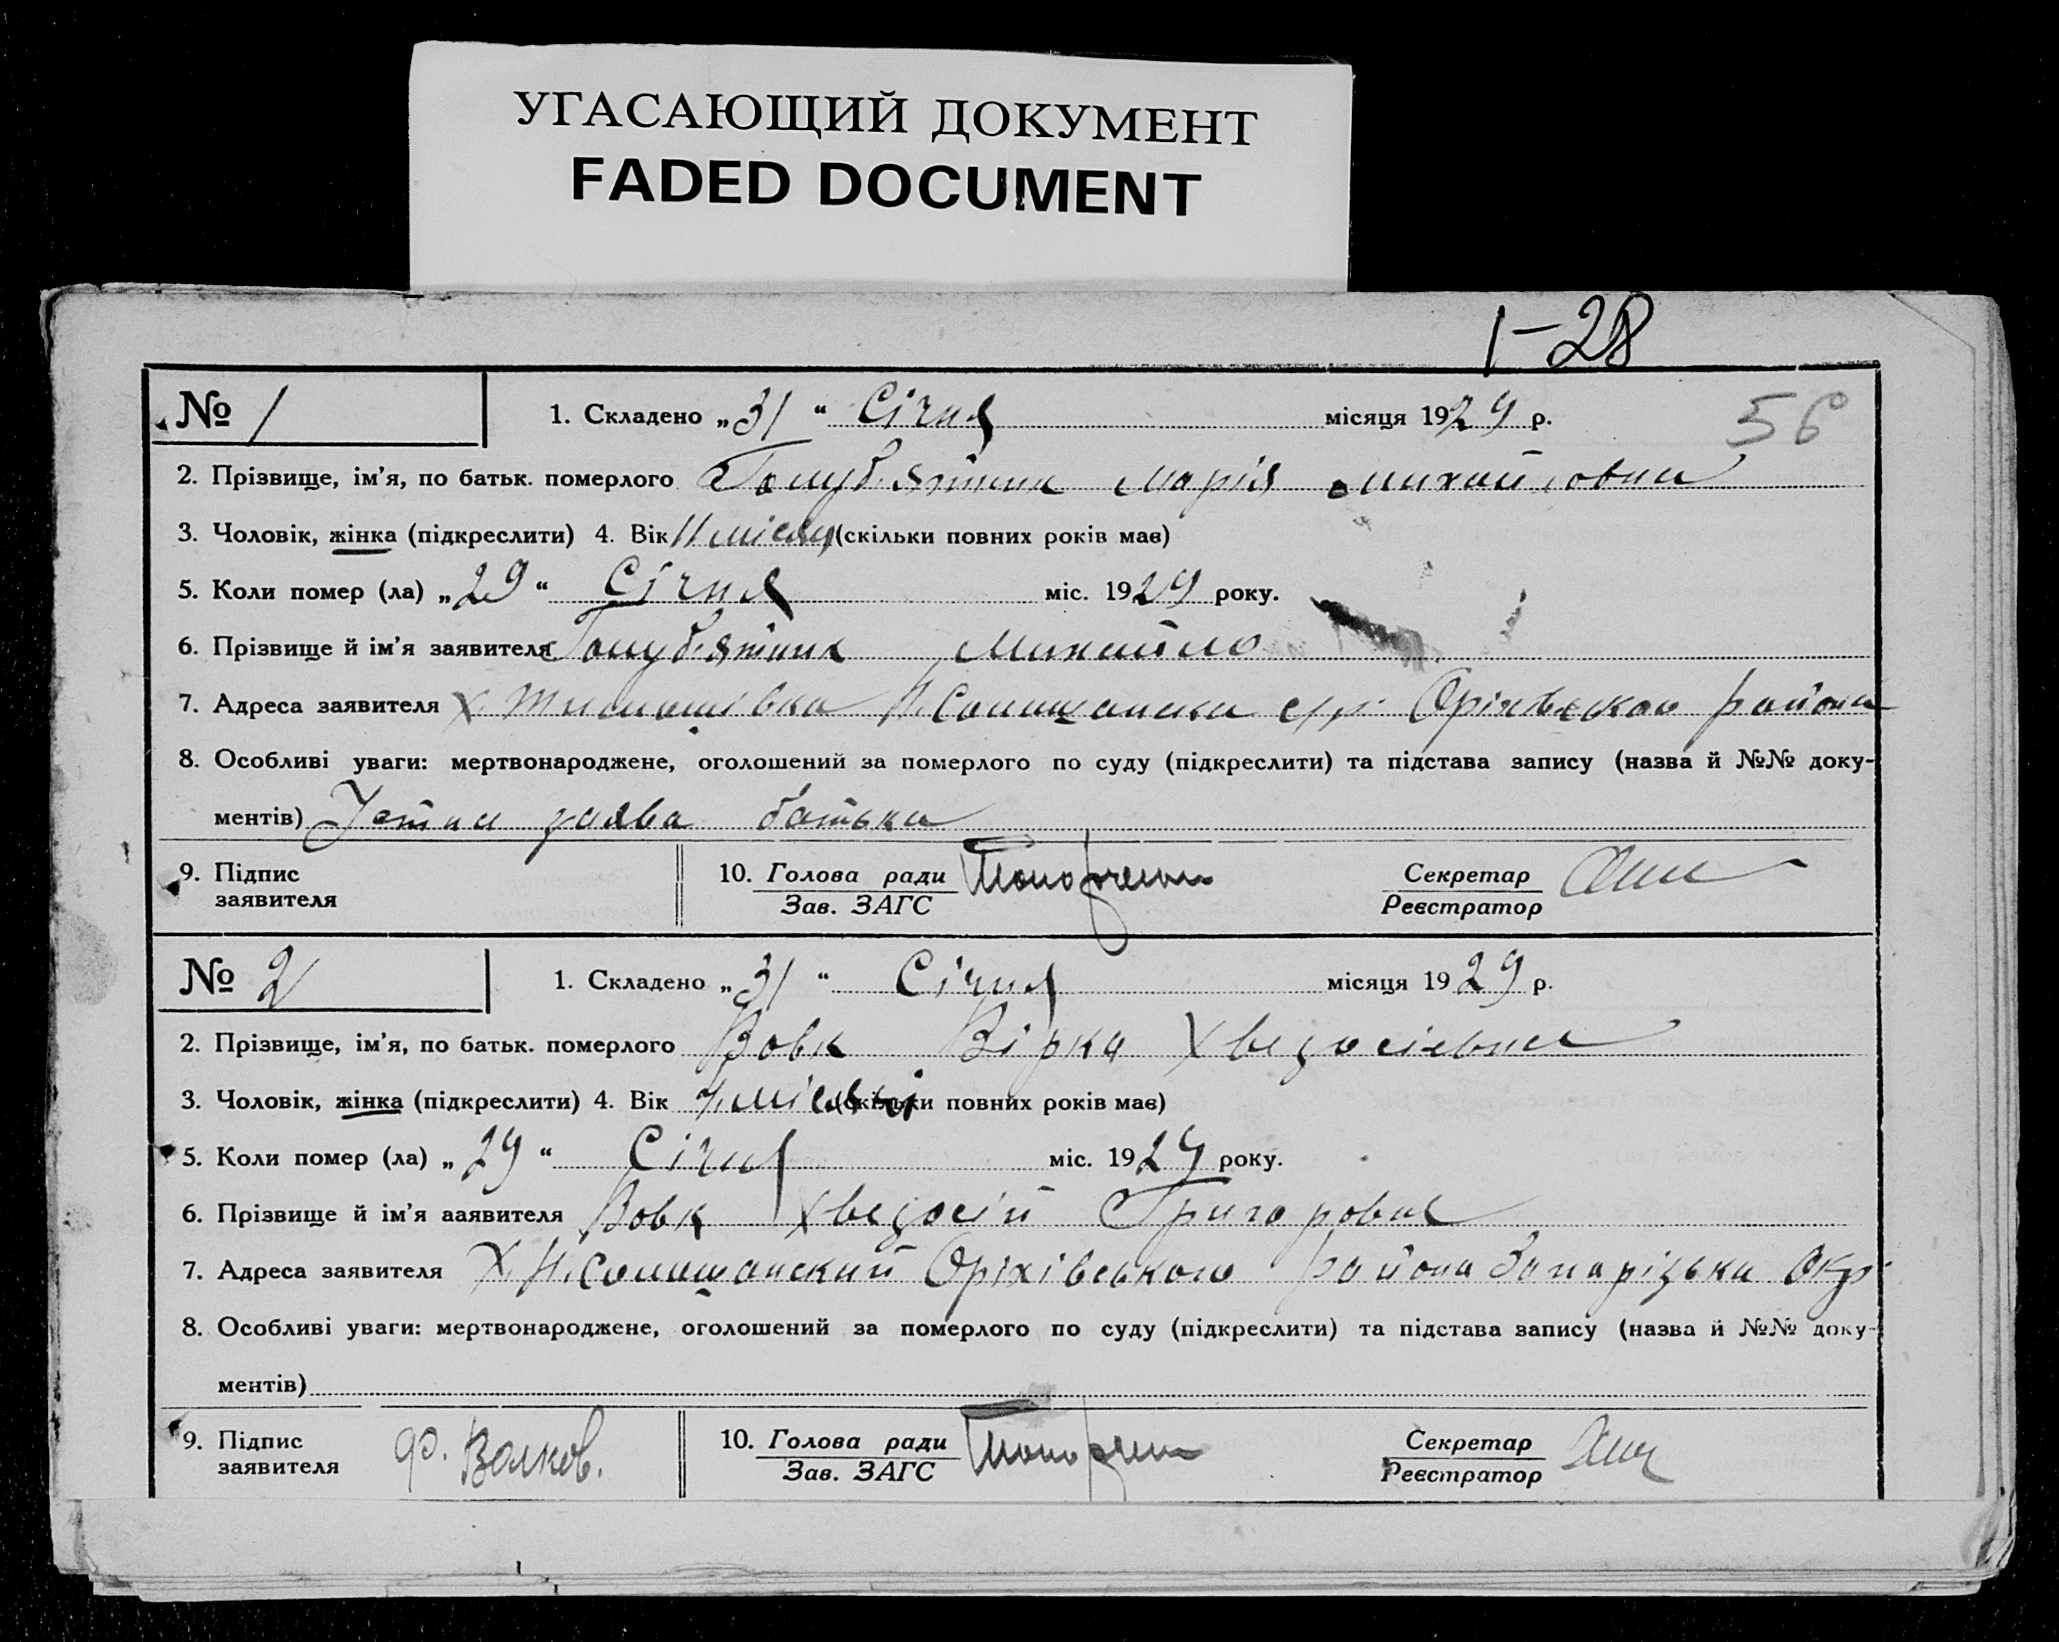 УГАСАЮЩИЙ ДОКУМЕНТ
FADED DOCUMENT
1-28
№ 1 1. Складено „31“ Січня місяця 1929 р. 56
2. Прізвище, ім'я, по батьк. померлого Голуб.ятник Марія Михайловна
3. Чоловік, жінка (підкреслити) 4. Вік 11 місяц (скільки повних років має)
5. Коли помер (ла) „29“ Січня міс. 1929 року.
6. Прізвище й ім'я заявителя Голуб.ятник Михайло
7. Адреса заявителя Х. Тимошівка Н. с/р Оріхівского района
8. Особливі уваги: мертвонароджене, оголошений за померлого по суду (підкреслити) та підстава запису (назва й №№ доку-
ментів) Устна заява батька
9. Підпис заявителя 10. Голова ради Зав. ЗАГС Секретар Реєстратор
№ 2 1. Складено „31“ Січня місяця 1929 р.
2. Прізвище, ім'я, по батьк. померлого Вовк Вірка Хведосіевна
3. Чоловік, жінка (підкреслити) 4. Вік місячи (скільки повних років має)
5. Коли помер (ла) „29“ Січня міс. 1929 року.
6. Прізвище й ім'я аявителя Вовк Хведосій Григорович
7. Адреса заявителя Х. Н. Оріхівського района Запарізька Окр.
8. Особливі уваги: мертвонароджене, оголошений за померлого по суду (підкреслити) та підстава запису (назва й №№ доку-
ментів)
9. Підпис заявителя Ф. Волков. 10. Голова ради Зав. ЗАГС Секретар Реєстратор